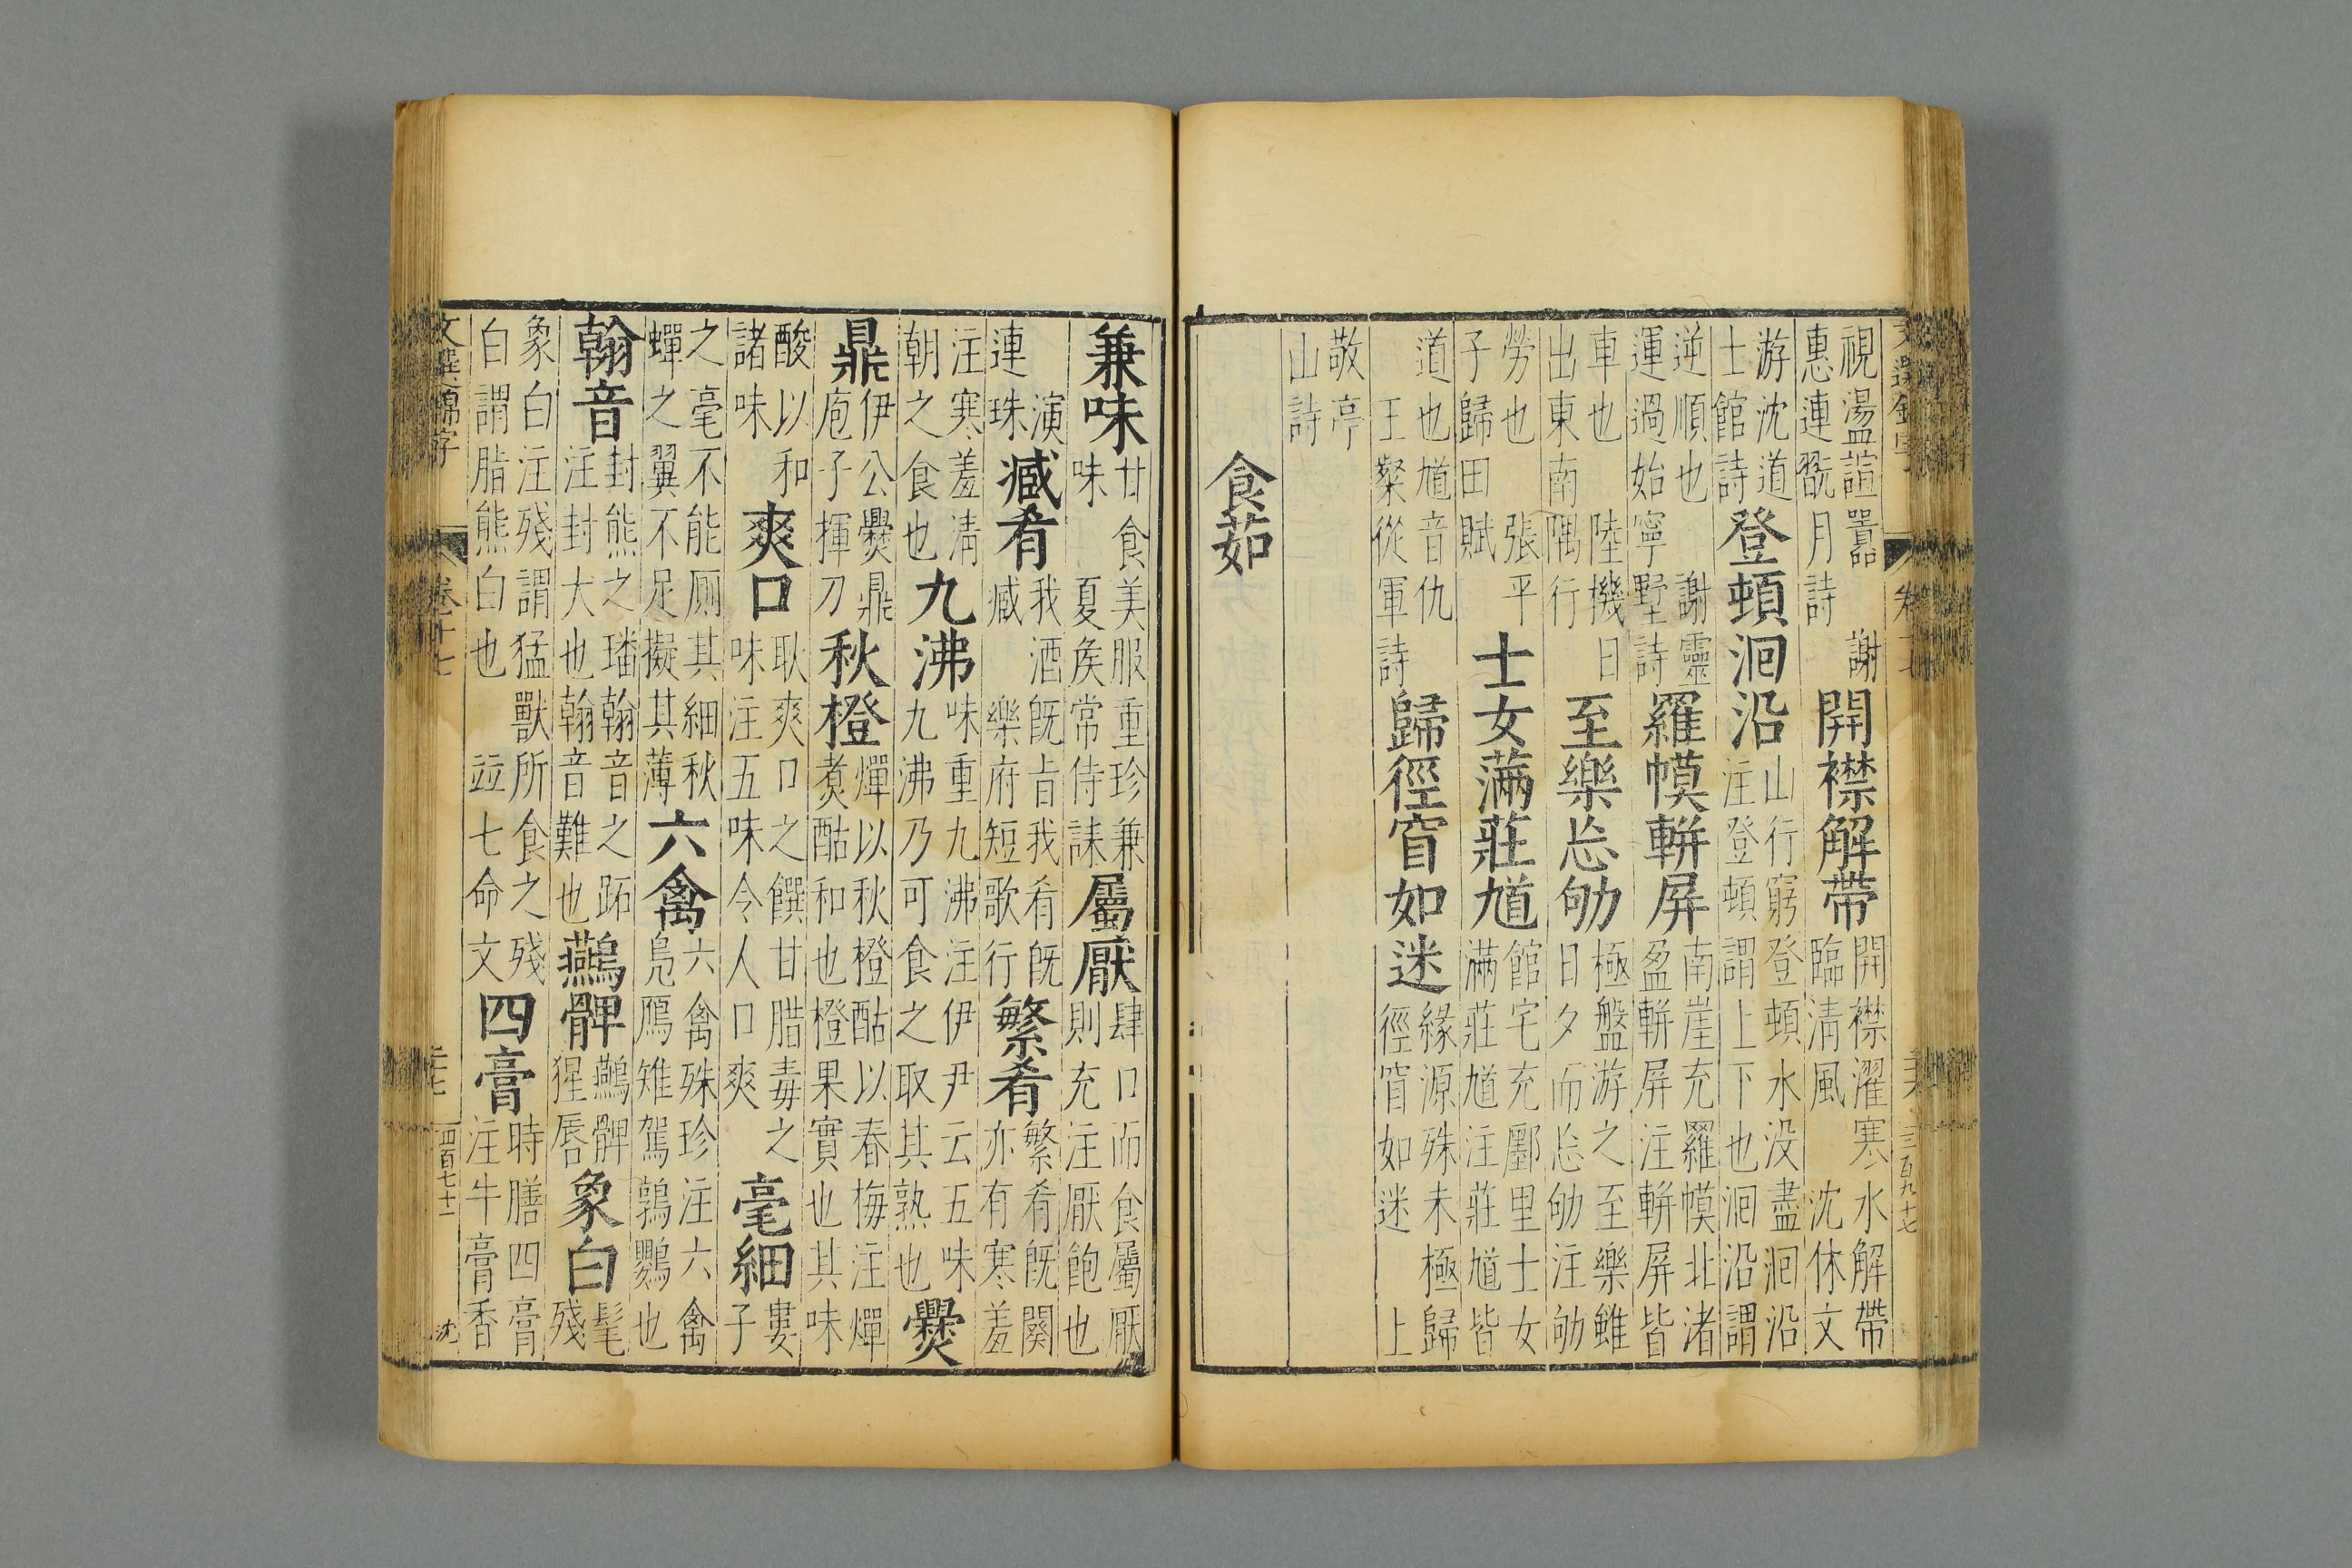 視盪諠囂謝惠連翫月詩開襟解帶開襟濯寒水解帶臨清風沈休文
游沈道士館詩登頓洄沿山行窮登頓水没盡洄沿注登頓謂上下也洄沿謂
逆順也謝靈運過始寧墅詩羅幙輧屏南崖充羅幙北渚盈輧屏注輧屏皆
車也陸機日出東南隅行至樂忘劬極盤游之至樂雖日夕而忘劬注劬
勞也張平子歸田賦士女滿莊馗館宅充鄽里士女滿莊馗注莊馗皆
道也馗音仇王粲從軍詩歸徑窅如迷緣源殊未極歸徑窅如迷上
敬亭山詩
食茹
兼味甘食美服重珍兼味夏侯常侍誄屬厭肆口而食屬厭則充注厭飽也
演連珠臧肴我酒既旨我肴既臧樂府短歌行繁肴繁肴既闋亦有寒羞
注寒羞清朝之食也九沸味重九沸注伊尹云五味九沸乃可食之取其熟也爨
鼎伊公爨鼎庖子揮刀秋橙燀以秋橙酤以春梅注燀煑酤和也橙果實也其味
酸以和諸味爽口耽爽口之饌甘腊毒之味注五味令人口爽毫細婁子
之毫不能厠其細秋蟬之翼不足擬其薄六禽六禽殊珍注六禽鳬鴈雉鴽鶉鷃也
翰音封熊之蹯翰音之跖注封大也翰音難也鷰髀鷰髀猩唇象白髦殘
象白注殘謂猛獸所食之殘白謂脂熊白也竝七命文四膏時膳四膏注牛膏香
文選錦字 卷十七 四百七十一 沈